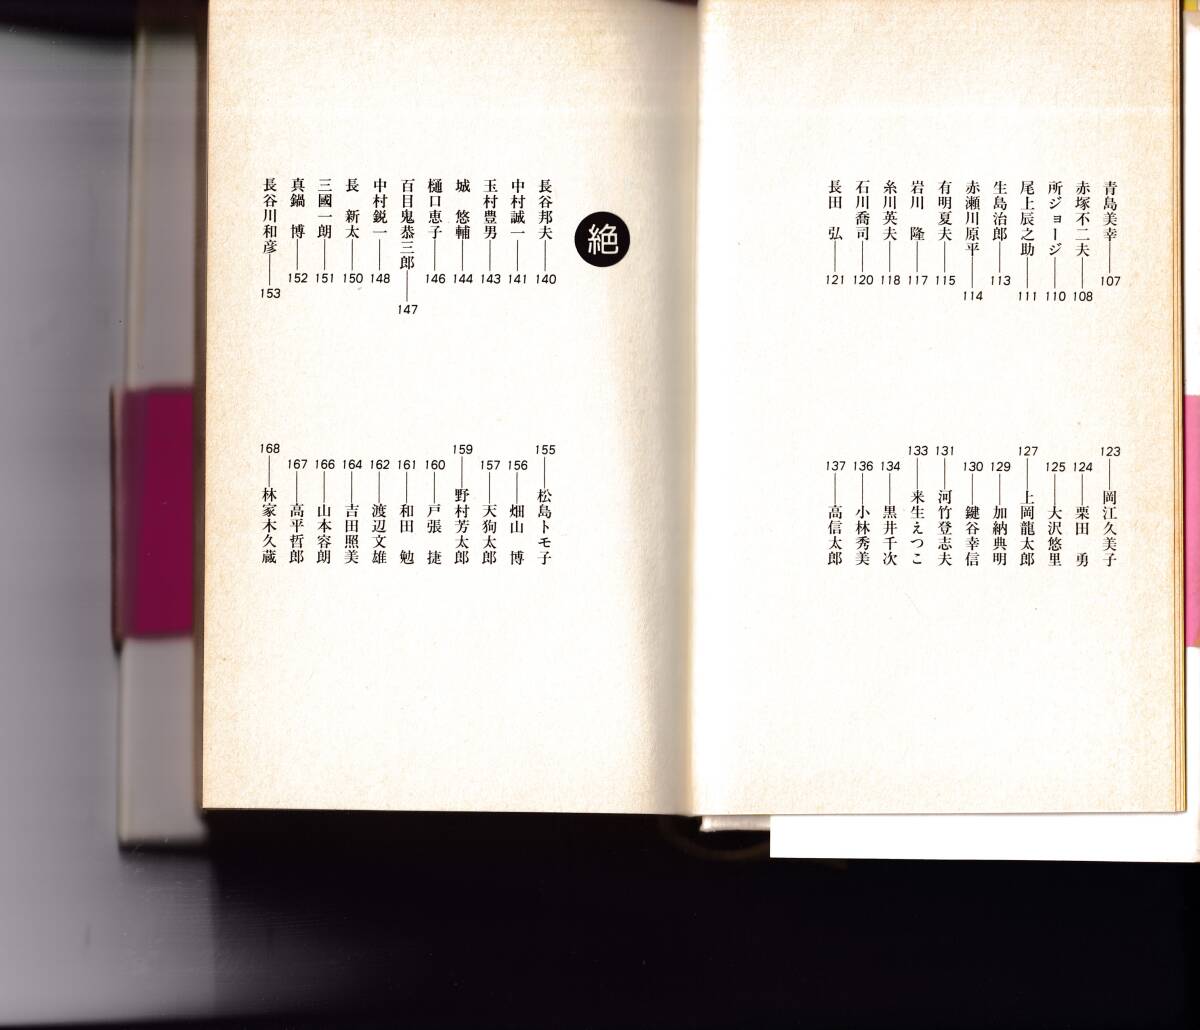 青島美幸――107
赤塚不二夫――108
所ジョージ――110
尾上辰之助――111
生島治郎――113
赤瀬川原平――114
有明夏夫――115
岩川 隆――117
糸川英夫――118
石川喬司――120
長田 弘――121
123――岡江久美子
124――栗田 勇
125――大沢悠里
127――上岡龍太郎
129――加納典明
130――鍵谷幸信
131――河竹登志夫
133――来生えつこ
134――黒井千次
136――小林秀美
137――高信太郎
絶
長谷邦夫――140
中村誠一――141
玉村豊男――143
城 悠輔――144
樋口恵子――146
百目鬼恭三郎――147
中村鋭一――148
長 新太――150
三國一朗――151
真鍋 博――152
長谷川和彦――153
155――松島トモ子
156――畑山 博
157――天狗太郎
159――野村芳太郎
160――戸張 捷
161――和田 勉
162――渡辺文雄
164――吉田照美
166――山本容朗
167――高平哲郎
168――林家木久蔵